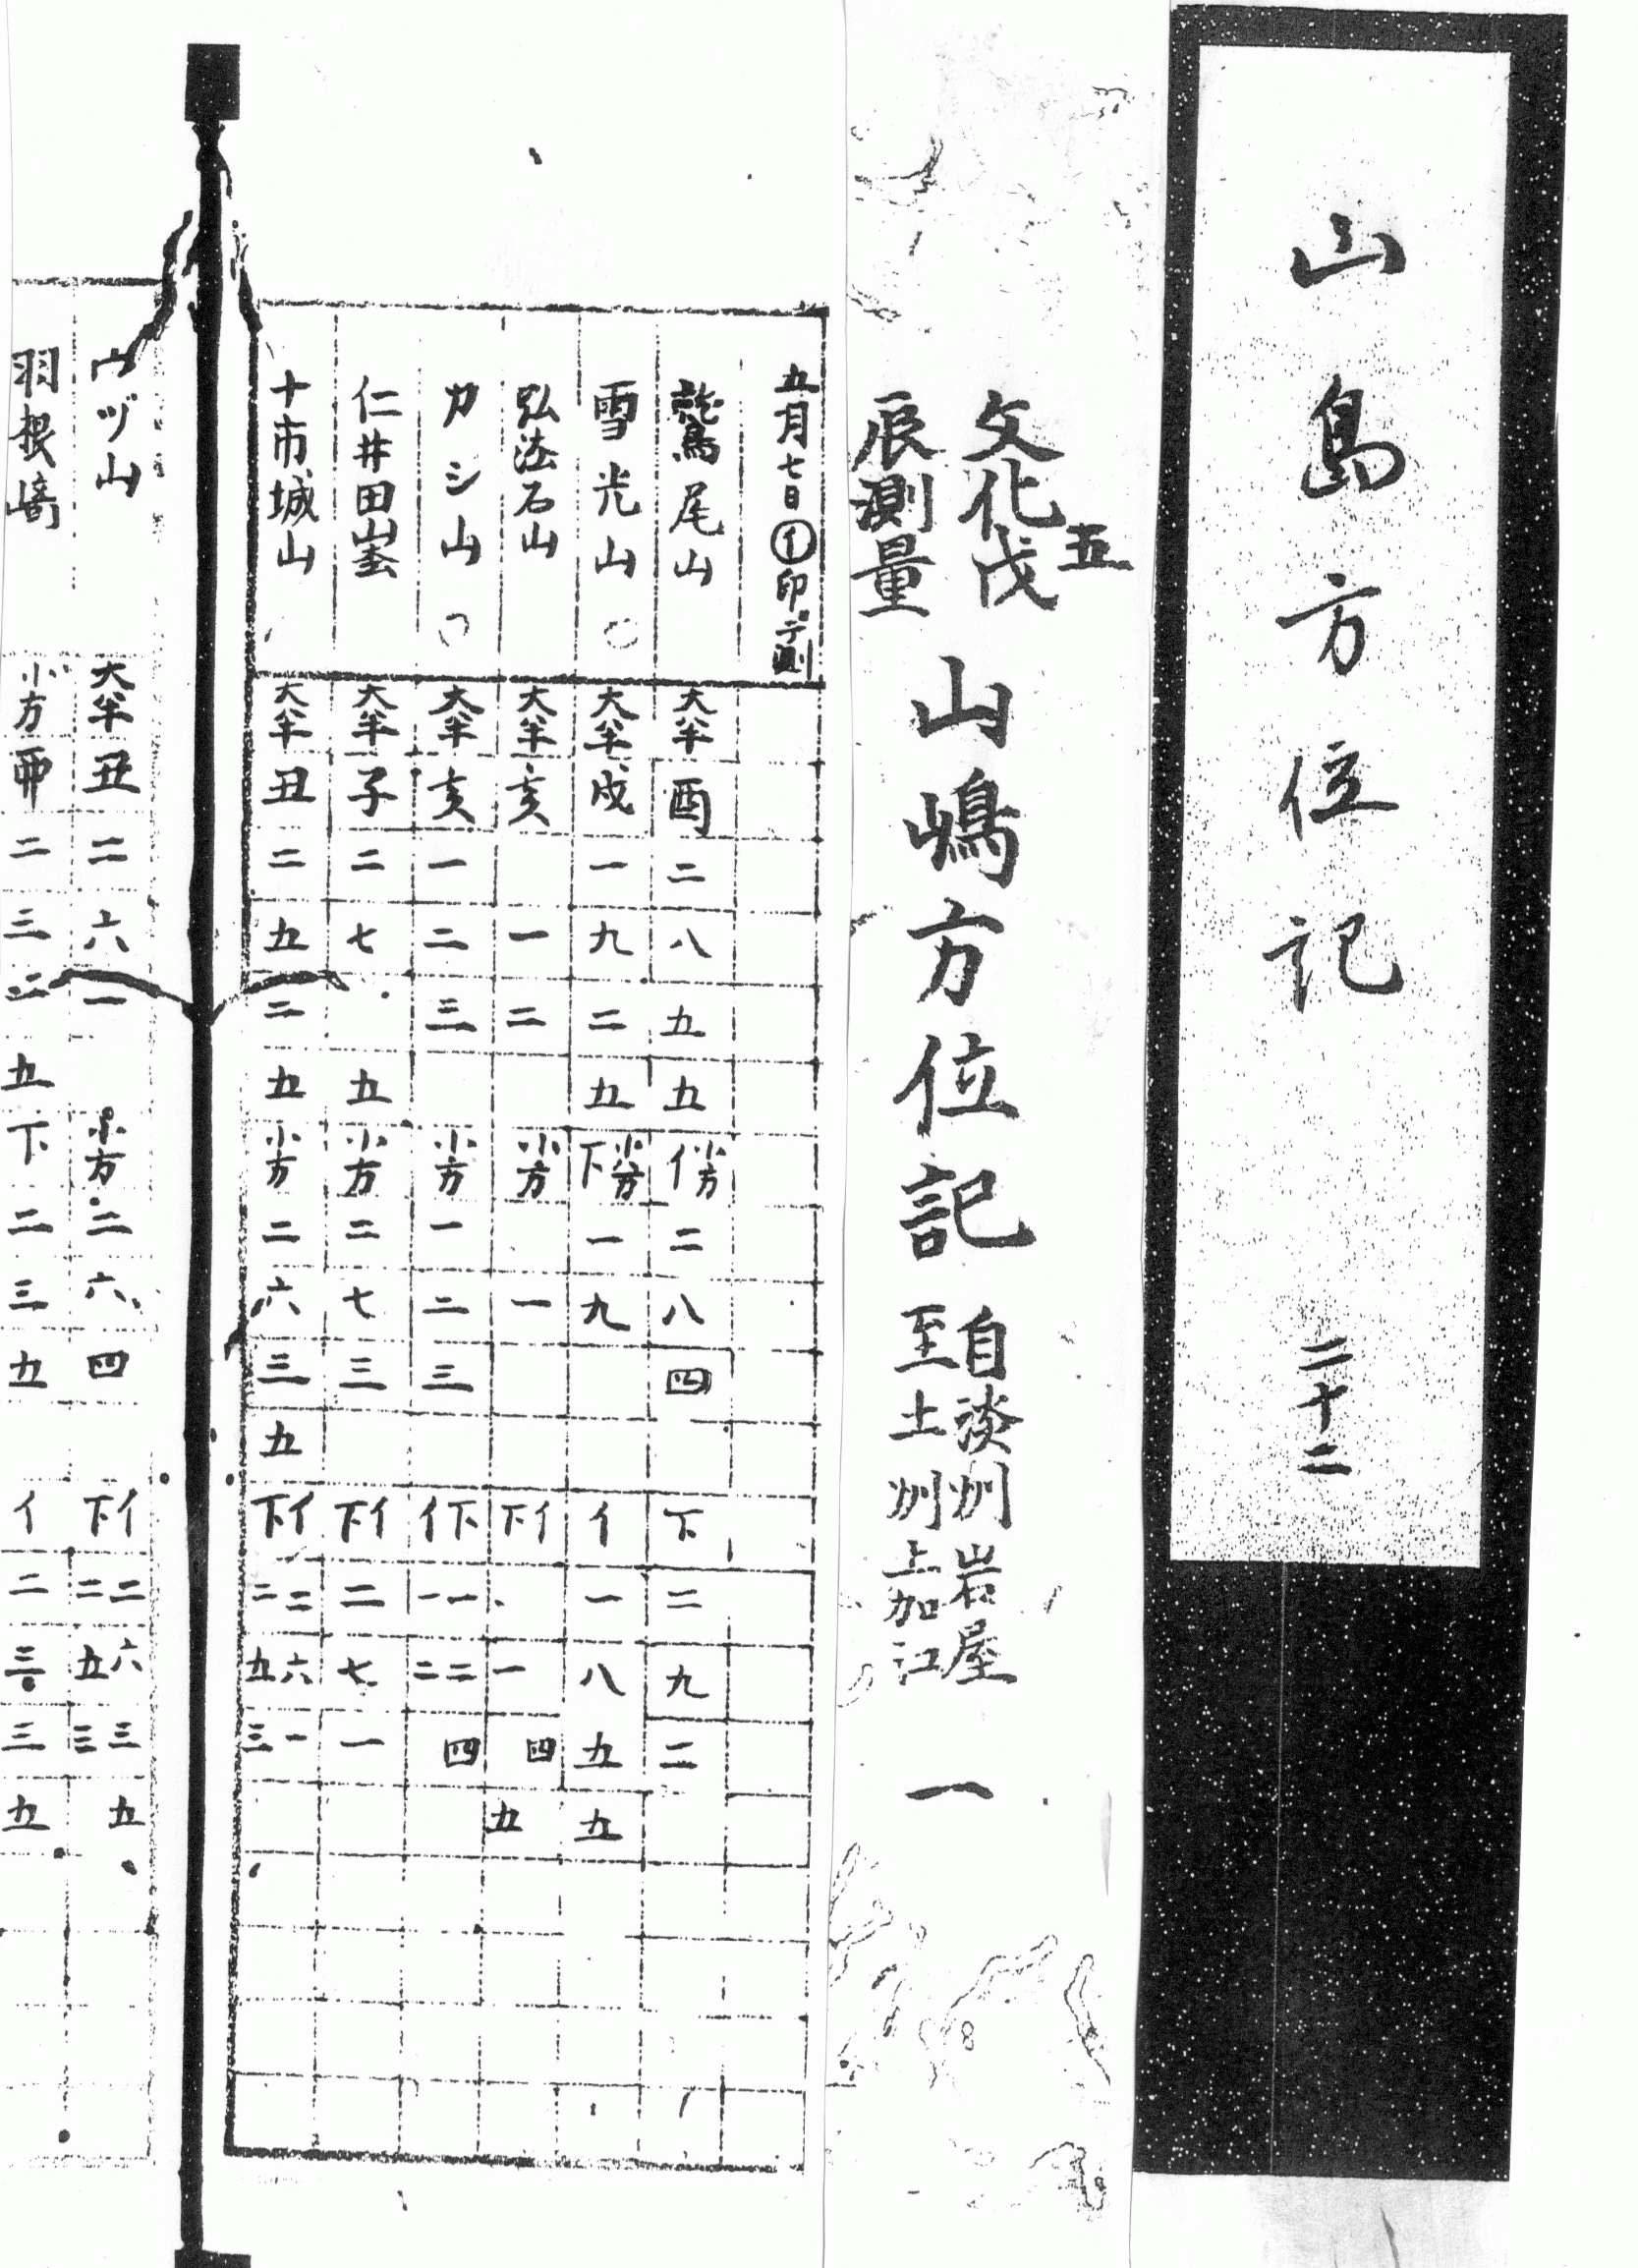 山島方位記 二十二
文化五戊
辰測量
山嶋方位記
自淡州岩屋
至土州上加江
一
五月七日 ㋑印ヨリ測
鷲尾山 大半 酉 二 八 五 五 小方 イ 二 八 四 下 二 九 二
雪光山 〇 大半 戌 一 九 二 五 小方 下 一 九 イ 一 八 五 五
弘法石山 大半 亥 一 二 小方 一 イ 下 一 四 五
カシ山 〇 大半 亥 一 二 三 小方 一 二 三 下 イ 一 一 二 二 四
仁井田 大半 子 二 七 五 小方 二 七 三 イ 下 二 七 一
十市城山 大半 丑 二 五 二 五 小方 二 六 三 五 イ 下 二 二 六 五 一 三
ウヅ山 大半 丑 二 六 一 小方 二 六 四 イ 下 二 二 六 五 三 三 五
羽根崎 小方 卯 二 三 二 五 下 二 三 五 イ 二 三 三 五